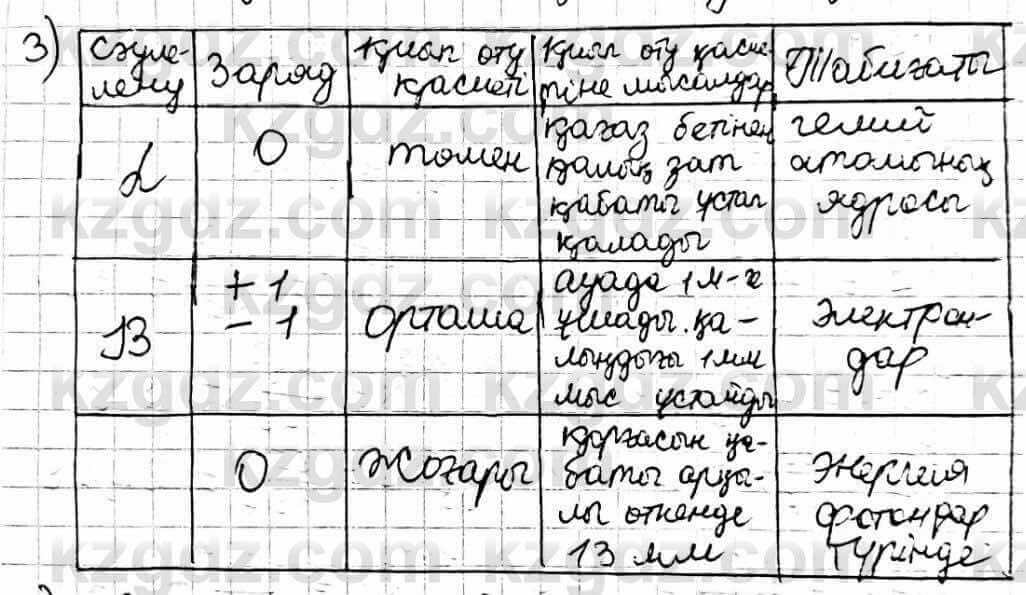 3)
Сәуле-
лену
Заряд
Қиып өту
қасиеті
Қиып өту қасие-
тіне мысалдар
Табиғаты
α
0
төмен
қағаз бетінен
қалың зат
қабаты ұстап
қалады
гелий
атомының
ядросы
β
+1
-1
орташа
ауада 1 м-ге
ұшады. қа-
лыңдығы 1 мм
мыс ұстайды
Электрон-
дар
0
Жоғары
Қорғасын қа-
баты арқы-
лы өткенде
13 мм
Энергия
фотондар
түрінде
kzgdz.com